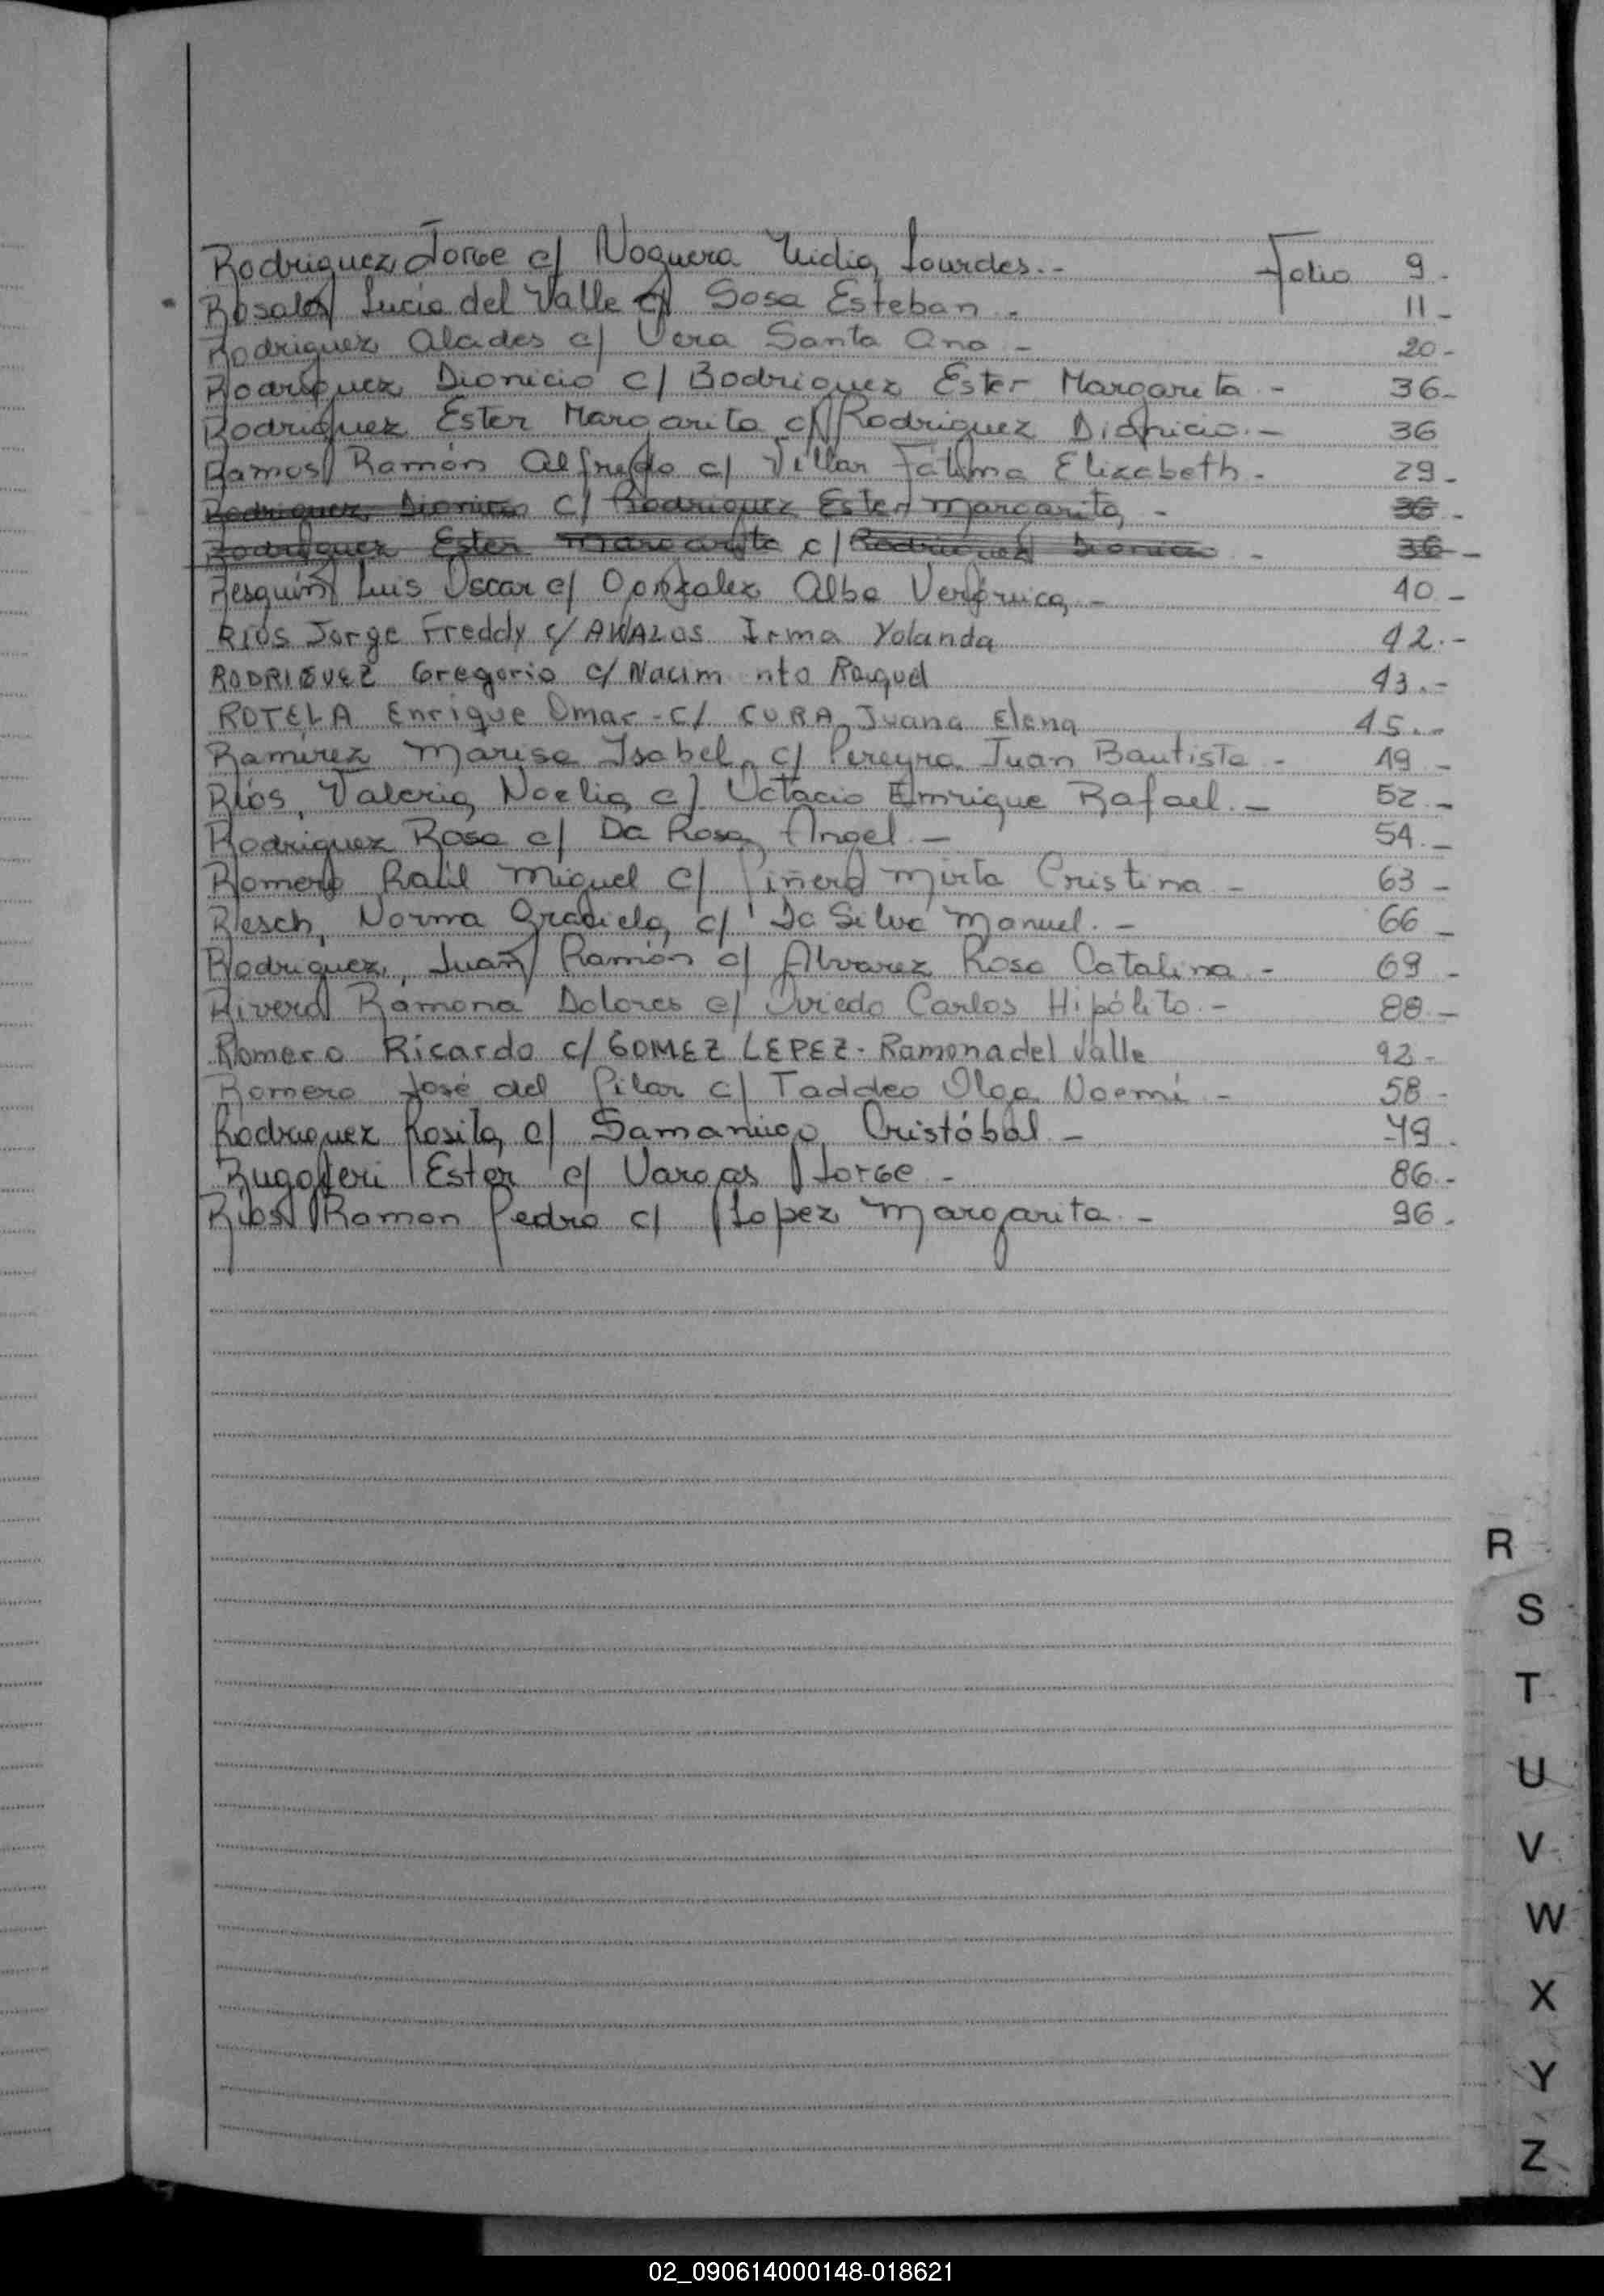 Rodriguez, Jorge c/ Noguera Lidia Lourdes.- Folio 9.-
Rosales Lucía del Valle c/ Sosa Esteban.- 11.-
Rodriguez Alcides c/ Vera Santa Ana.- 20.-
Rodriguez Dionicio c/ Rodriguez Ester Margarita.- 36.-
Rodriguez Ester Margarita c/ Rodriguez Dionicio.- 36
Ramos Ramón Alfredo c/ Villar Fátima Elizabeth.- 29.-
Rodriguez Dionicio c/ Rodriguez Ester Margarita.- 36.-
Rodriguez Ester Margarita c/ Rodriguez Dionicio.- 36.-
Luis Oscar c/ Gonzalez Alba Verónica.- 40.-
RIOS Jorge Freddy c/ AVALOS Irma Yolanda 42.-
RODRIGUEZ Gregorio c/ Nacim nto Raquel 43.-
ROTELA Enrique Omar - c/ CURA, Juana Elena 45.-
Ramírez Marisa Isabel c/ Pereyra Juan Bautista.- 49.-
Ríos, Valeria Noelia c/ Enrique Rafael.- 52.-
Rodriguez Rosa c/ Da Rosa Angel.- 54.-
Romero Raúl Miguel c/ Piñero Mirta Cristina.- 63.-
Resch, Norma Graciela c/ Da Silva Manuel.- 66.-
Rodriguez, Juan Ramón c/ Alvarez Rosa Catalina.- 69.-
Rivero Ramona Dolores c/ Oviedo Carlos Hipólito.- 88.-
Romero Ricardo c/ GOMEZ LEPEZ - Ramona del Valle 92.-
Romero José del Pilar c/ Taddeo Olga Noemí.- 58.-
Rodriguez Rosita c/ Samaniego Cristóbal.- 79.
Ester c/ Vargas Jorge.- 86.-
Ríos Ramon Pedro c/ Lopez Margarita.- 96.
R
S
T
U
V
W
X
Y
Z
02_090614000148-018621